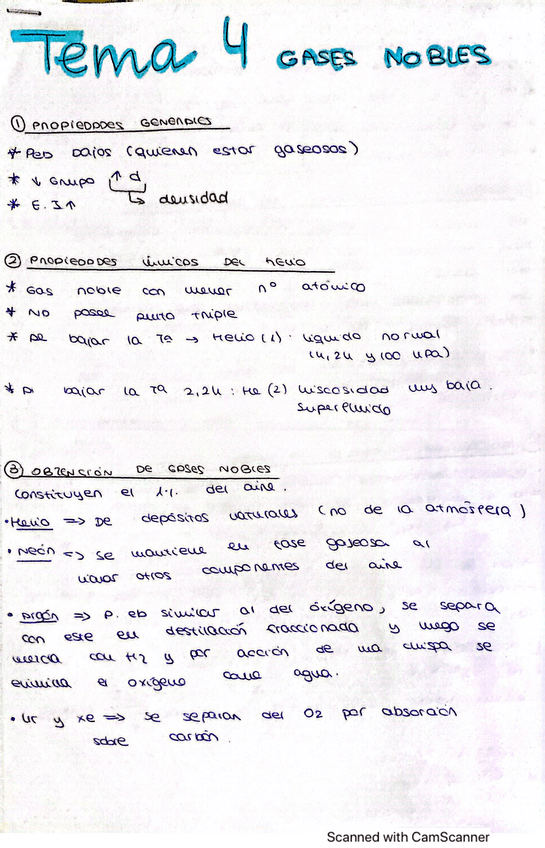 Tema 4 GASES NOBLES
① PROPIEDADES GENERALES
* Peb bajos (quieren estar gaseosos)
* ↓ Grupo ↑ d
↳ densidad
* E.I ↑
② PROPIEDADES ÚNICAS DEL HELIO
* Gas noble con menor nº atómico
* No posee punto triple
* Al bajar la Tª → Helio (1): líquido normal
(4,2K y 100 kPa)
* Al bajar la Tª 2,2K : He (2) viscosidad muy baja.
Superfluido
③ OBTENCIÓN DE GASES NOBLES
Constituyen el 1%. del aire.
• Helio => De depósitos naturales (no de la atmósfera)
• Neón => Se mantiene en fase gaseosa al
licuar otros componentes del aire
• Argón => P. eb similar al del oxígeno, se separa
con este en destilación fraccionada y luego se
mezcla con H2 y por acción de una chispa se
elimina el oxígeno como agua.
• Kr y Xe => Se separan del O2 por absorción
sobre carbón.
Scanned with CamScanner